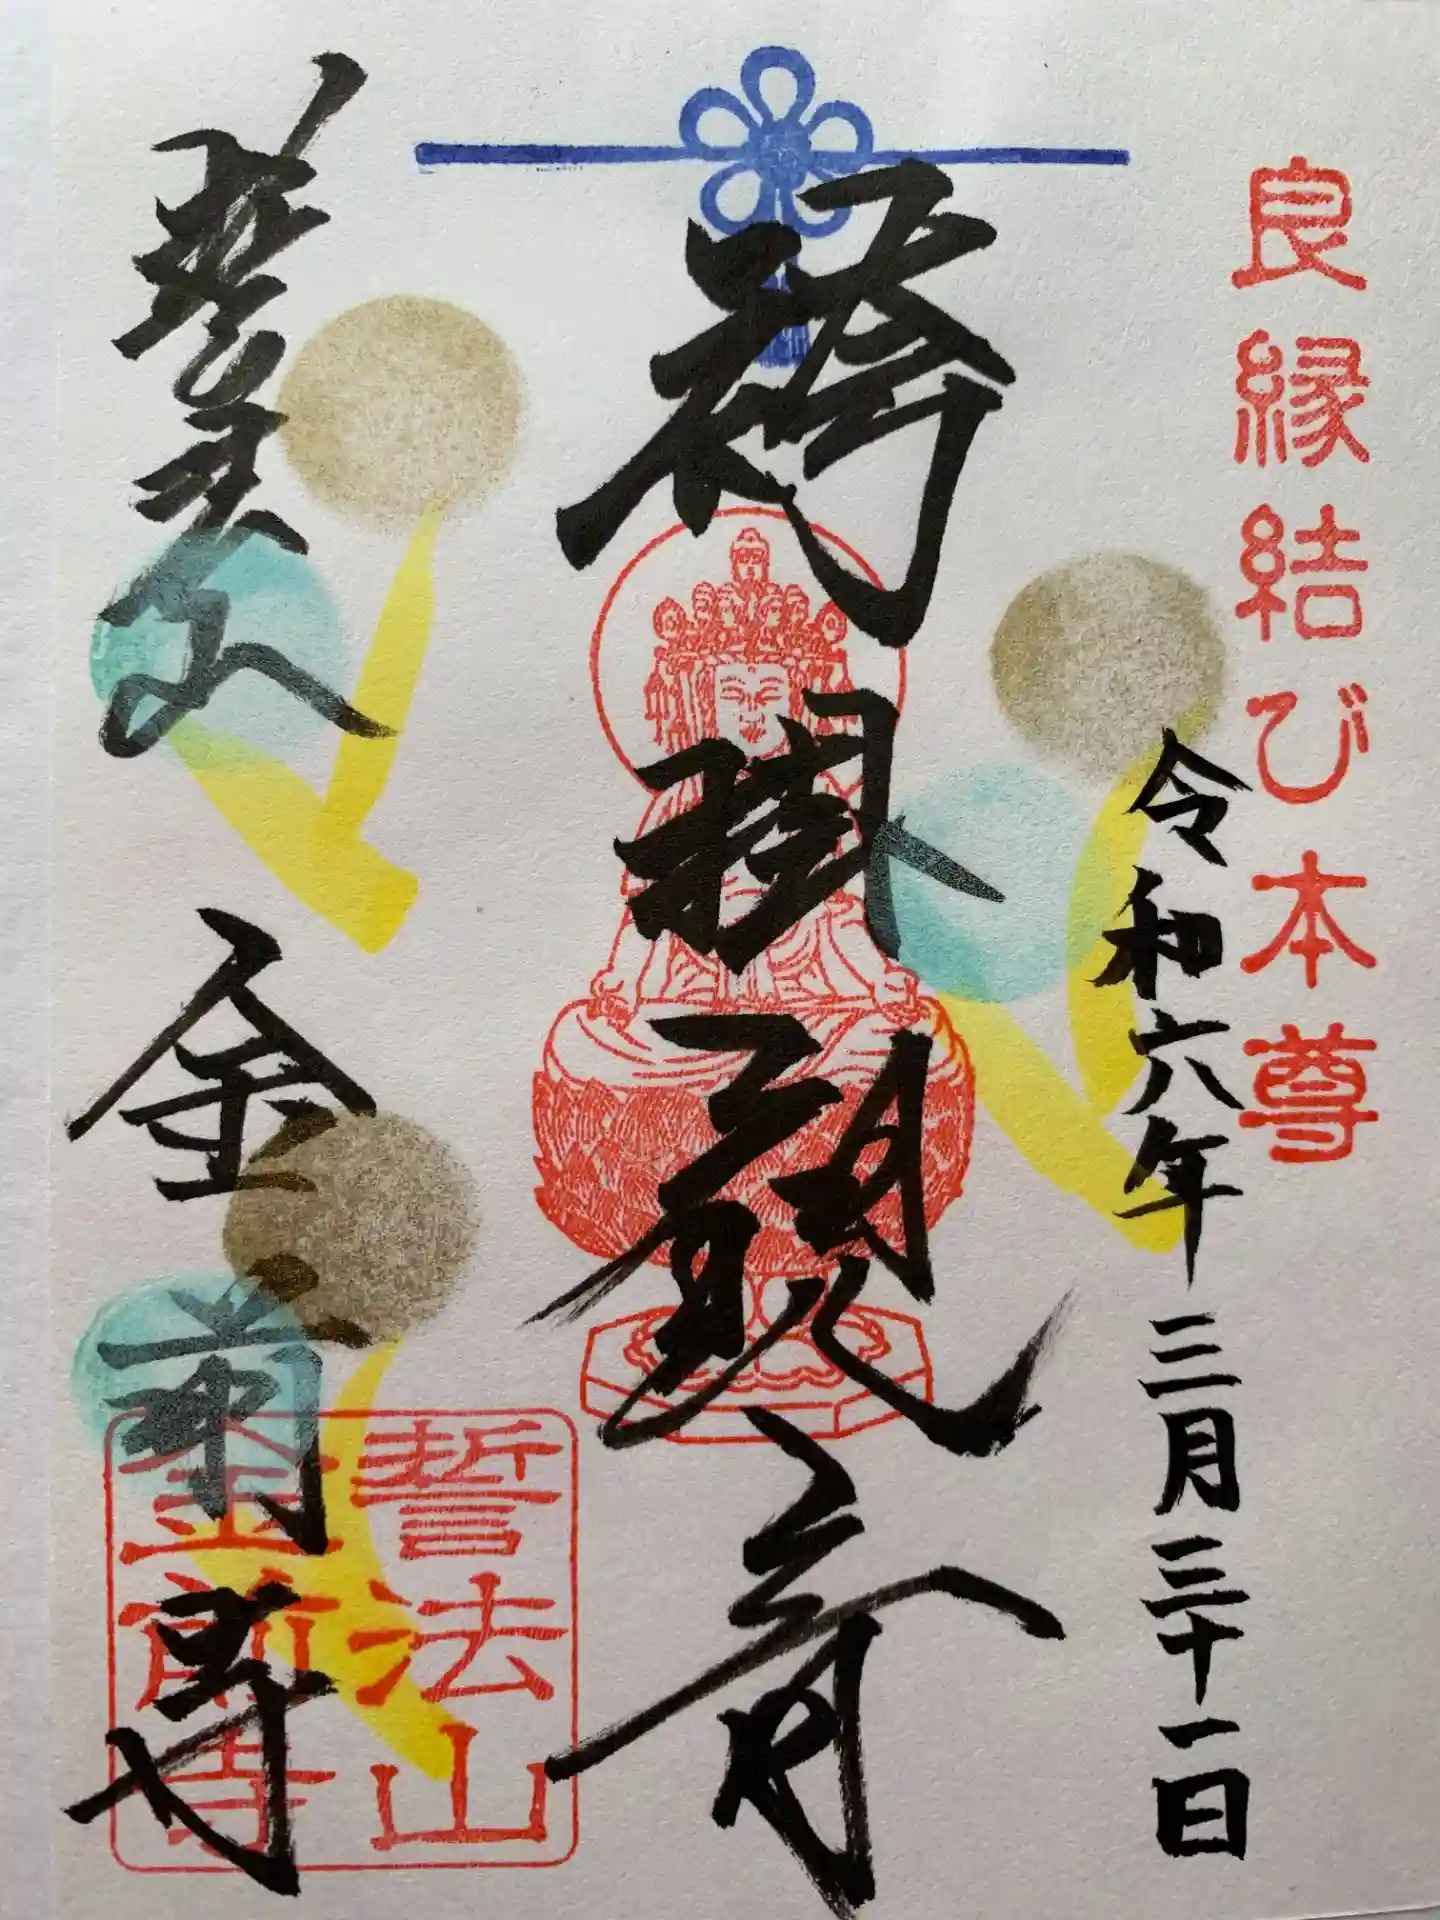 良縁結び本尊
令和六年三月三十一日
袴掛観音
金前寺
誓法山
金前寺